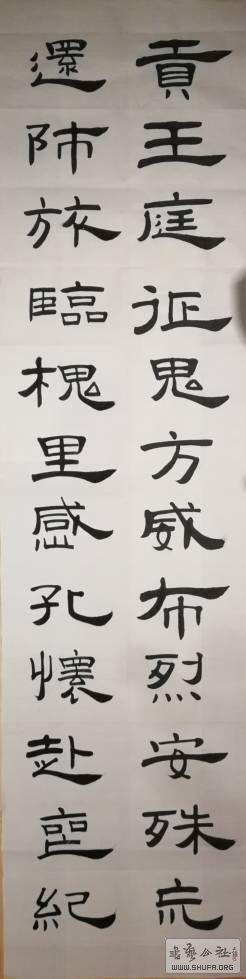 貢王庭征鬼方威布烈安殊巟
還師旅臨槐里感孔懷赴喪紀
书艺公社
WWW.SHUFA.ORG